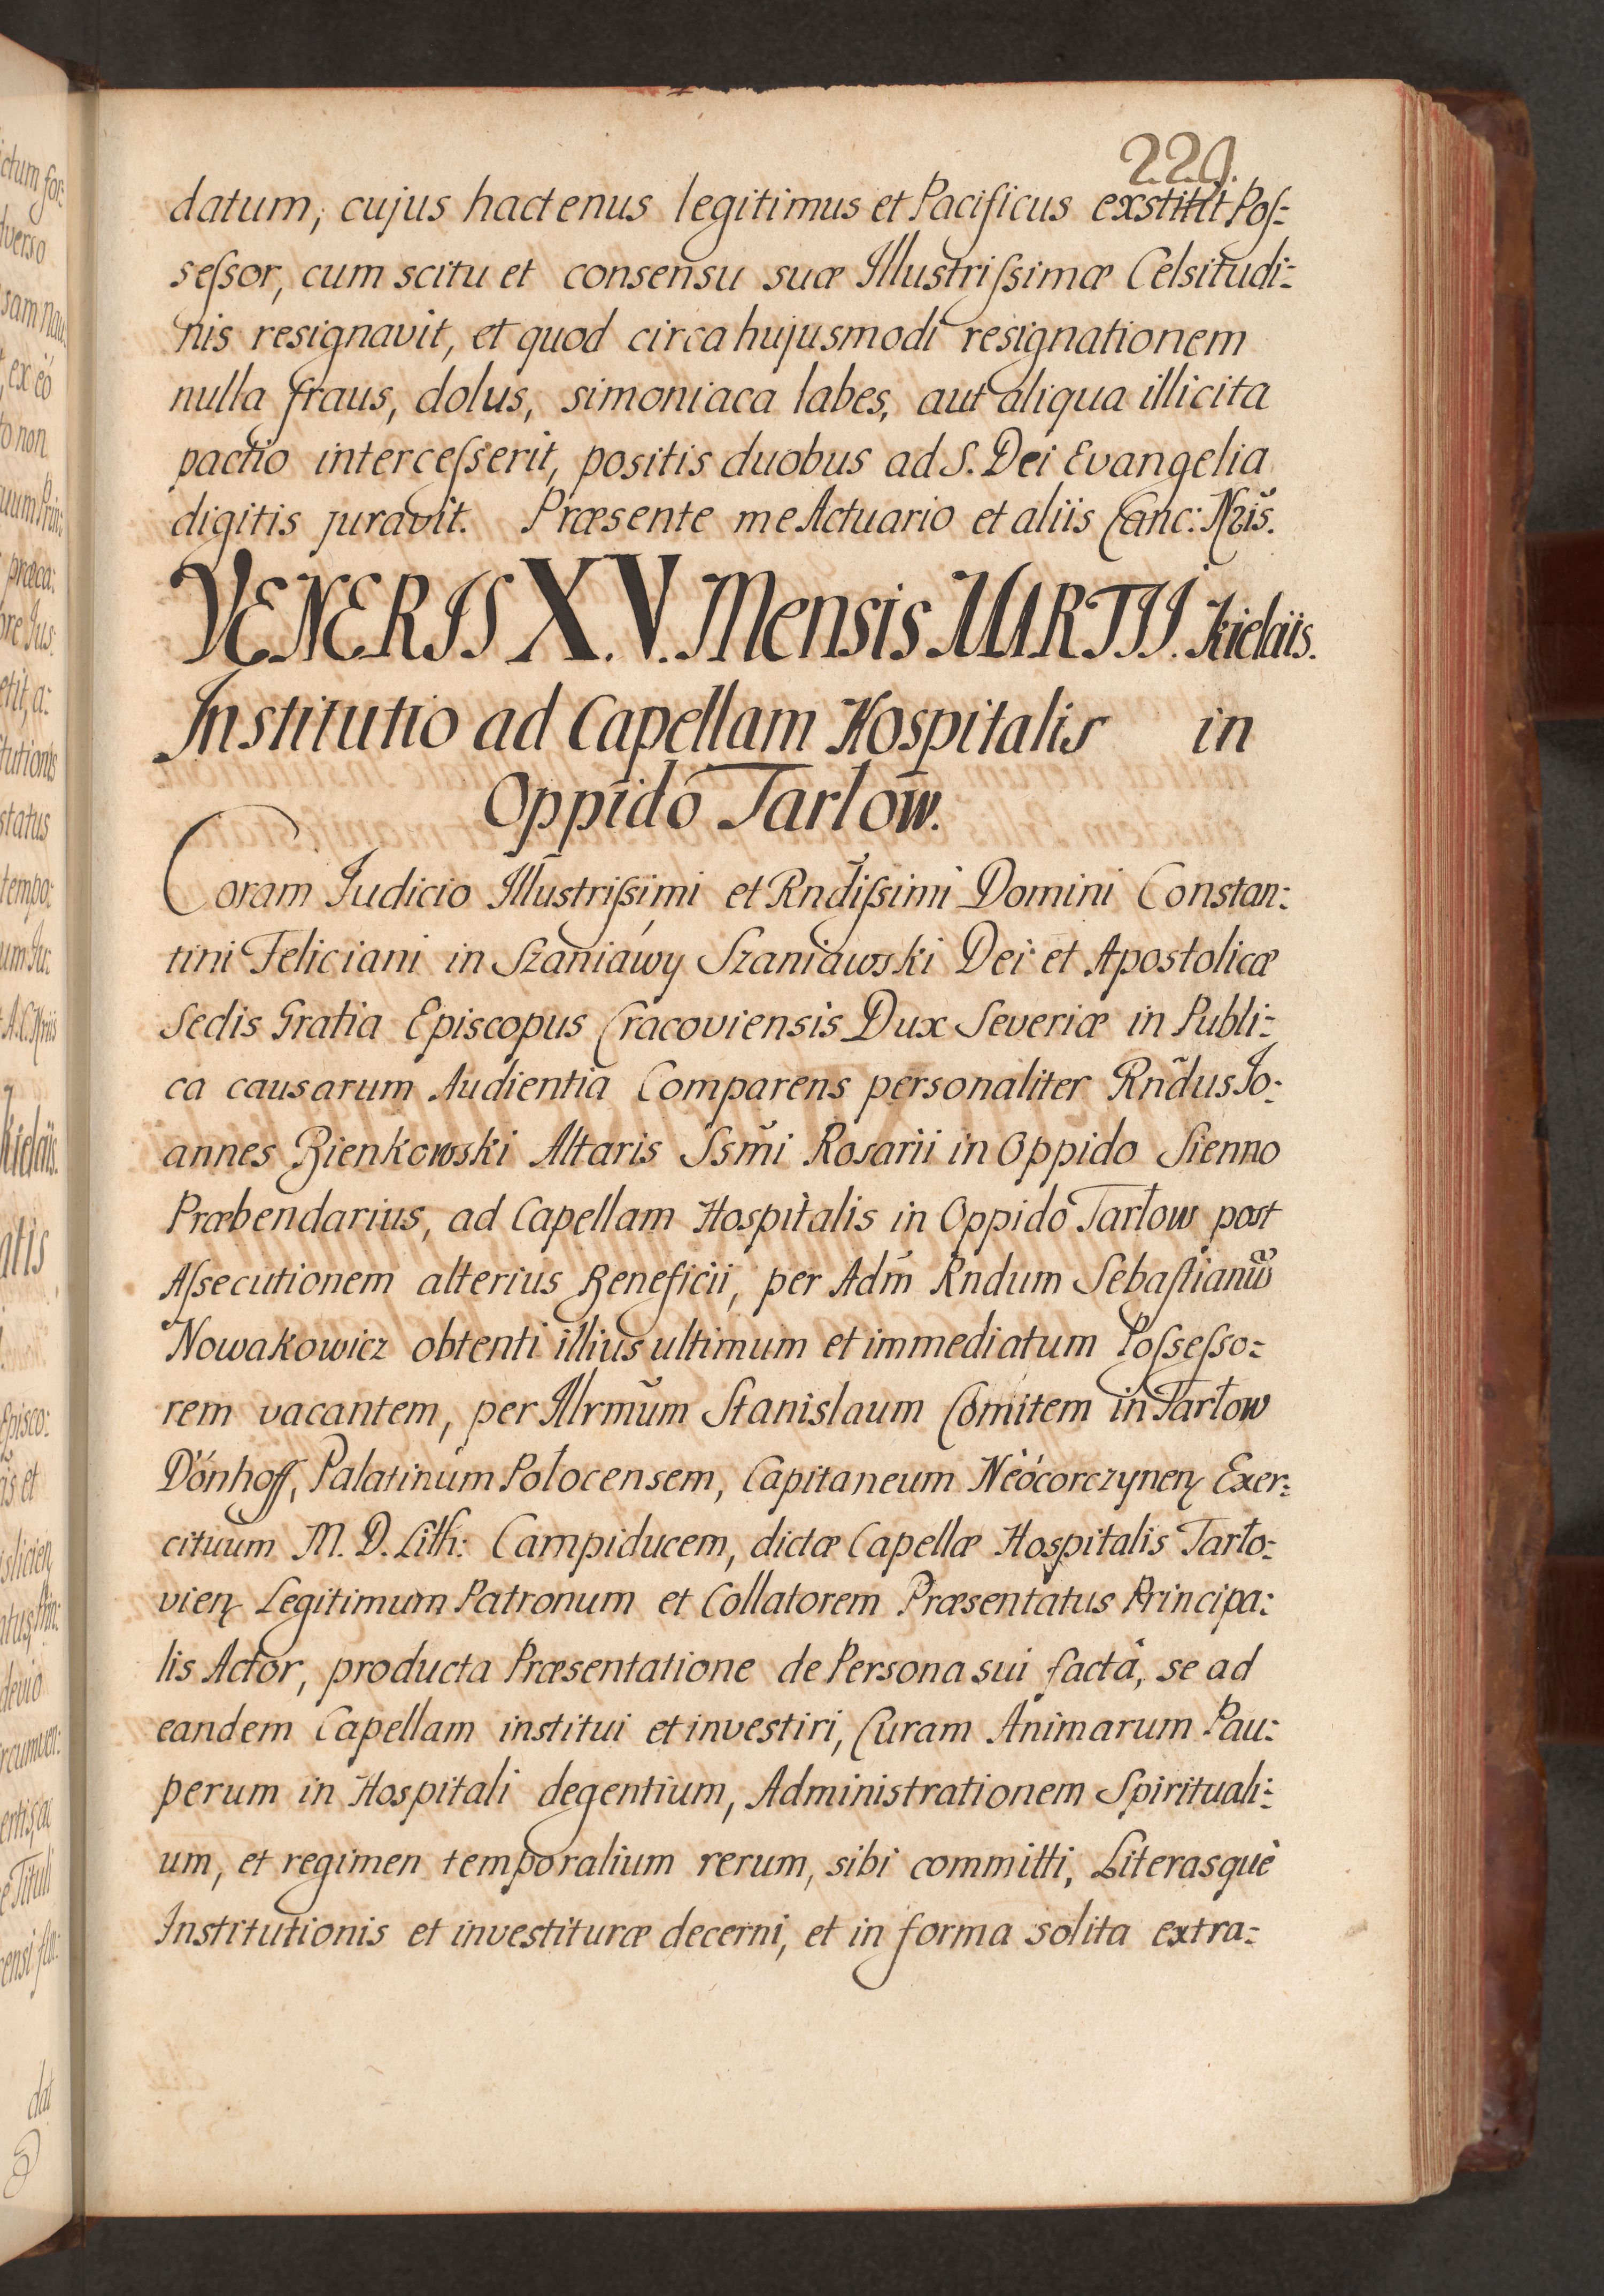 220.
datum, cujus hactenus legitimus et Pacificus exstitit Poſ:
seſsor, cum scitu et consensu suæ Illustriſsimæ Celsitudi:
nis resignavit, et quod circa hujusmodi resignationem
nulla fraus, dolus, simoniaca labes, aut aliqua illicita
pactio interceſserit, positis duobus ad S. Dei Evangelia
digitis juravit. Præsente me Actuario et aliis Canc: Nr̃is.
VENERIS X.V. Mensis MARTII. Kielciis.
Institutio ad Capellam Hospitalis in
Oppido Tarłow.
Coram Judicio Illustriſsimi et Rnd̃iſsimi Domini Constan:
tini Feliciani in Szaniawy Szaniawski Dei et Apostolicæ
Sedis Gratia Episcopus Cracoviensis Dux Severiæ in Publi:
ca causarum Audientia Comparens personaliter Rñdus Jo:
annes Bienkowski Altaris Ssm̃i Rosarii in Oppido Sienno
Præbendarius, ad Capellam Hospitalis in Oppido Tarłow post
Aſsecutionem alterius Beneficii, per Adm̃ Rndum Sebaſtianũ
Nowakowicz obtenti illius ultimum et immediatum Poſseſso:
rem vacantem, per Illrmũm Stanislaum Comitem in Tarłow
Dónhoff, Palatinum Połocensem, Capitaneum Neòcorczynen̨ Exer:
cituum M. D. Lith: Campiducem, dictæ Capellæ Hospitalis Tarło:
vien̨ Legitimum Patronum et Collatorem Præsentatus Principa:
lis Actor, producta Præsentatione de Persona sui factâ, se ad
eandem Capellam institui et investiri, Curam Animarum Pau:
perum in Hospitali degentium, Administrationem Spirituali:
um, et regimen temporalium rerum, sibi committi, Literasquè
Institutionis et investituræ decerni, et in forma solita extra: